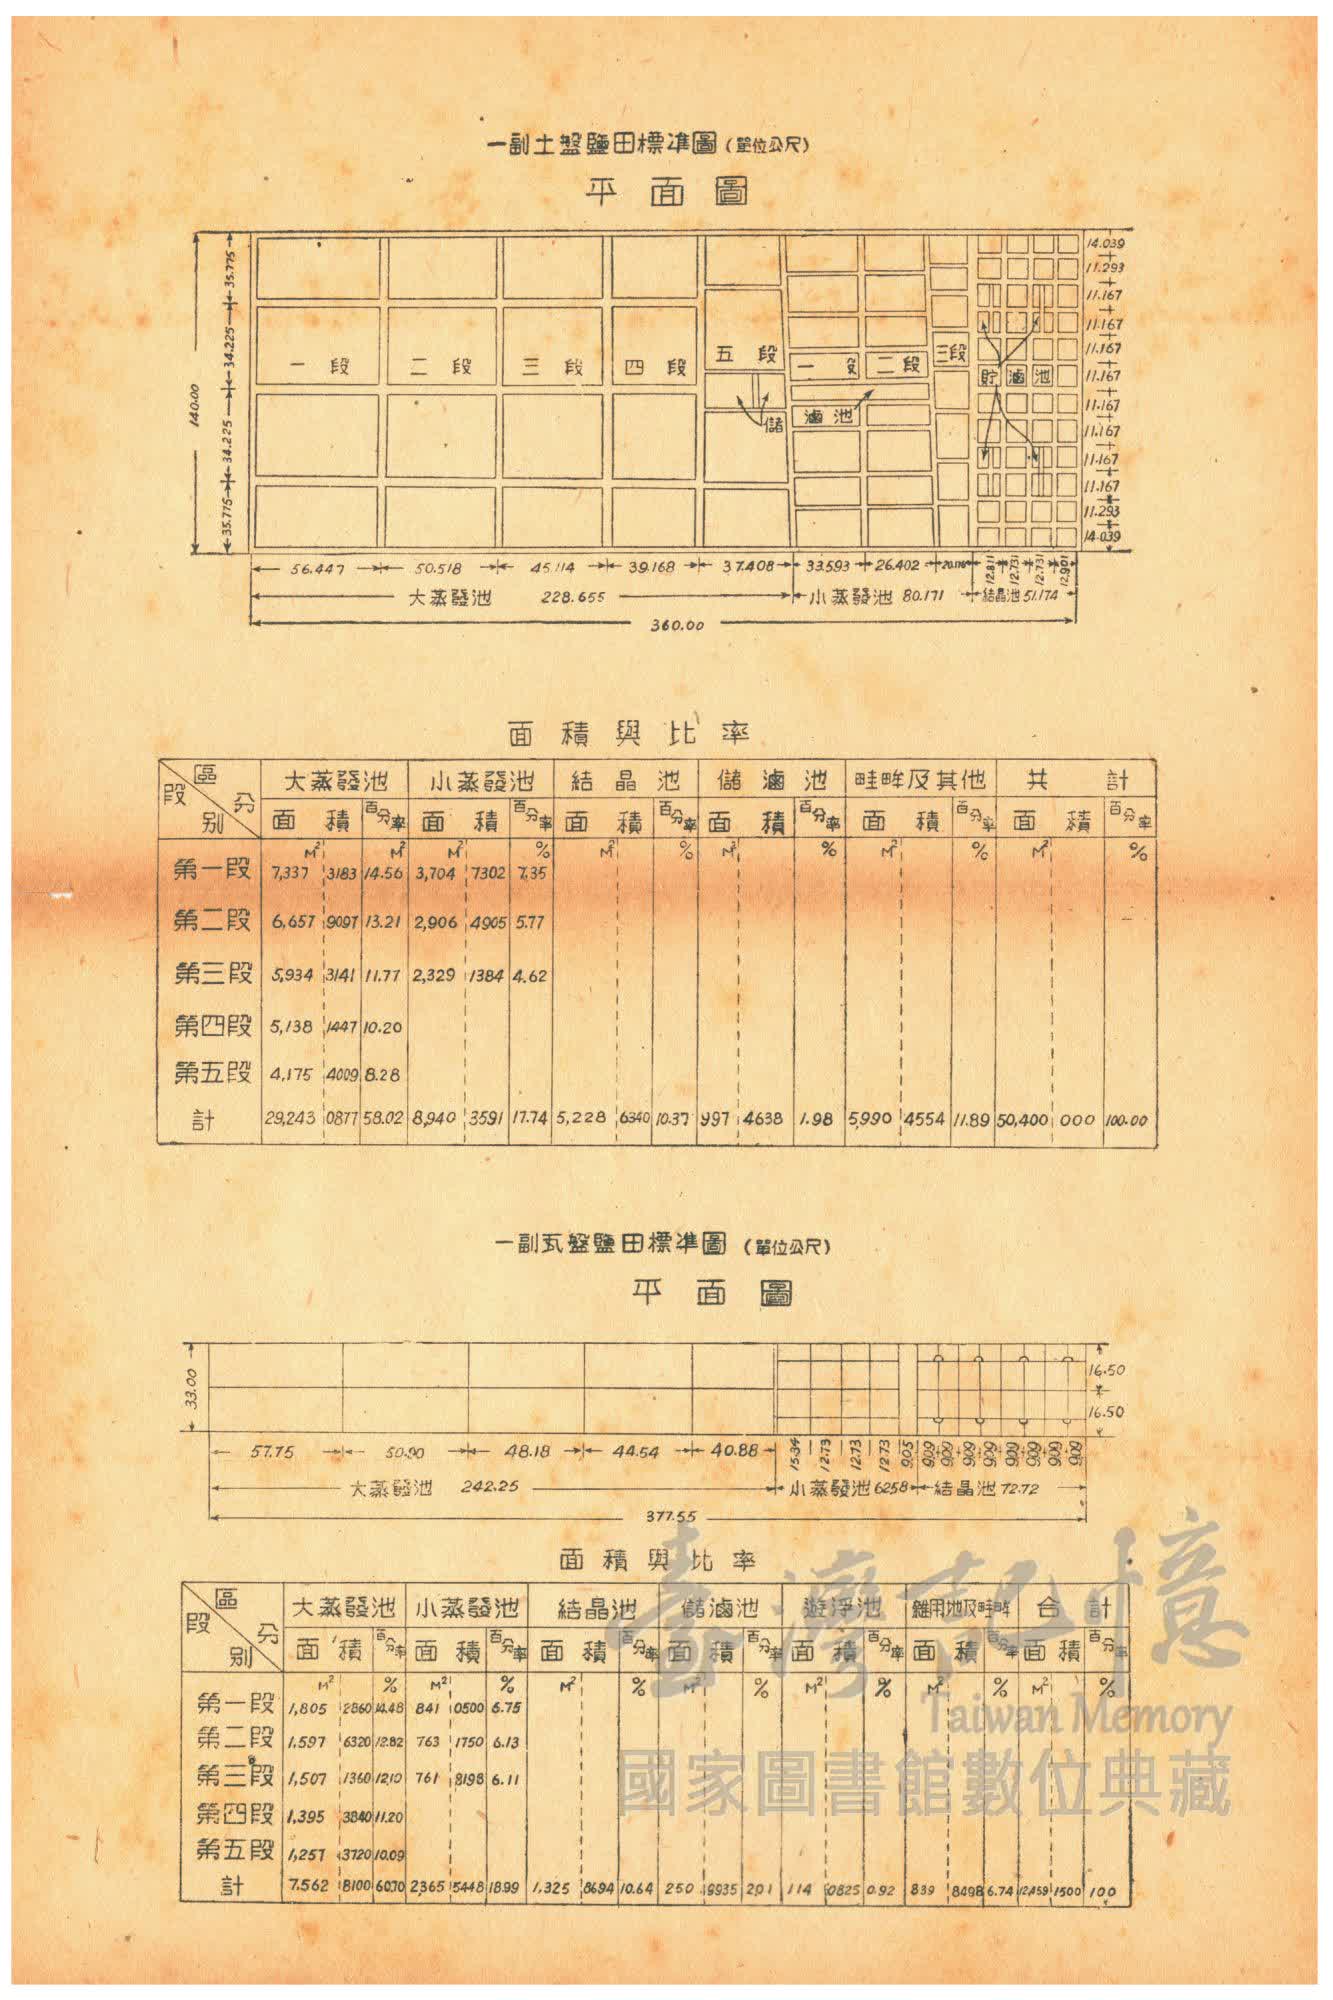 一副土盤鹽田標準圖(單位公尺)
平面圖
140.00
35.775
34.225
34.225
35.775
一段 二段 三段 四段 五段 一段 二段 三段
儲 滷池
貯滷池
14.039
11.293
11.167
11.167
11.167
11.167
11.167
11.167
11.167
11.167
11.293
14.039
56.447 50.518 45.114 39.168 37.408 33.593 26.402 20.176 12.811 12.731 12.731 12.901
大蒸發池 228.655 小蒸發池 80.171 結晶池 51.174
360.00
面積與比率
區分 段別 大蒸發池 小蒸發池 結晶池 儲滷池 畦畔及其他 共計
面積 百分率 面積 百分率 面積 百分率 面積 百分率 面積 百分率 面積 百分率
M² M² M² % M² % M² % M² % M² %
第一段 7,337 3183 14.56 3,704 7302 7.35
第二段 6,657 9097 13.21 2,906 4905 5.77
第三段 5,934 3141 11.77 2,329 1384 4.62
第四段 5,138 1447 10.20
第五段 4,175 4009 8.28
計 29,243 0877 58.02 8,940 3591 17.74 5,228 6340 10.37 997 4638 1.98 5,990 4554 11.89 50,400 000 100.00
一副瓦盤鹽田標準圖(單位公尺)
平面圖
33.00
16.50
16.50
57.75 50.90 48.18 44.54 40.88 15.34 12.73 12.73 12.73 9.05 9.09 9.09 9.09 9.09 9.09 9.09 9.09 9.09
大蒸發池 242.25 小蒸發池 62.58 結晶池 72.72
377.55
面積與比率
區分 段別 大蒸發池 小蒸發池 結晶池 儲滷池 遊浮池 雜用地及畦畔 合計
面積 百分率 面積 百分率 面積 百分率 面積 百分率 面積 百分率 面積 百分率 面積 百分率
M² % M² % M² % M² % M² % M² % M² %
第一段 1,805 2860 14.48 841 0500 6.75
第二段 1.597 6320 12.82 763 1750 6.13
第三段 1,507 1360 12.10 761 8198 6.11
第四段 1,395 3840 11.20
第五段 1,257 3720 10.09
計 7.562 8100 60.70 2,365 5448 18.99 1,325 8694 10.64 250 9935 2.01 114 0825 0.92 839 8498 6.74 12,459 1500 100
臺灣記憶
Taiwan Memory
國家圖書館數位典藏